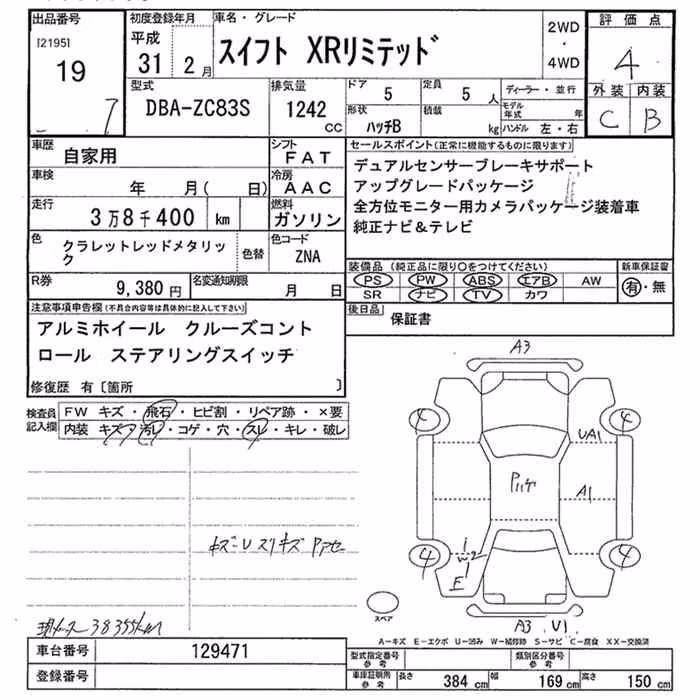 出品番号
[2195]
19
7
初度登録年月
平成
31 2月
車名・グレード
スイフト XRリミテッド
2WD
・
4WD
評価点
4
外装 内装
C B
型式
DBA-ZC83S
排気量
1242
CC
ドア
5
定員
5 人
形状
ハッチB
積載
kg
ディーラー・並行
モデル年式 年
ハンドル 左・右
車歴
自家用
シフト
FAT
車検
年 月( 日)
冷房
AAC
走行
3万8千400 km
燃料
ガソリン
色
クラレットレッドメタリック
色替
色コード
ZNA
R券
9,380 円
名変通知期限
月 日
セールスポイント(正常に機能するものに限ります)
デュアルセンサーブレーキサポート
アップグレードパッケージ
全方位モニター用カメラパッケージ装着車
純正ナビ&テレビ
装備品(純正品に限り○をつけてください)
PS PW ABS エアB AW
SR ナビ TV カワ
新車保証書
有・無
後日品
保証書
注意事項申告欄(不具合内容等は具体的に記入して下さい)
アルミホイール クルーズコント
ロール ステアリングスイッチ
修復歴 有〔箇所 〕
検査員
記入欄
FW キズ・飛石・ヒビ割・リペア跡・×要
内装 キズ・汚レ・コゲ・穴・スレ・キレ・破レ
A3
4 4
UA1
A1
4 4
W2
E
A3 U1
スペア
A-キズ E-エクボ U-凹み W-補修跡 S-サビ C-腐食 XX-交換済
車台番号
129471
登録番号
型式指定番号
参考
類別区分番号
参考
車庫証明用
参考
長さ 384 cm 幅 169 cm 高さ 150 cm